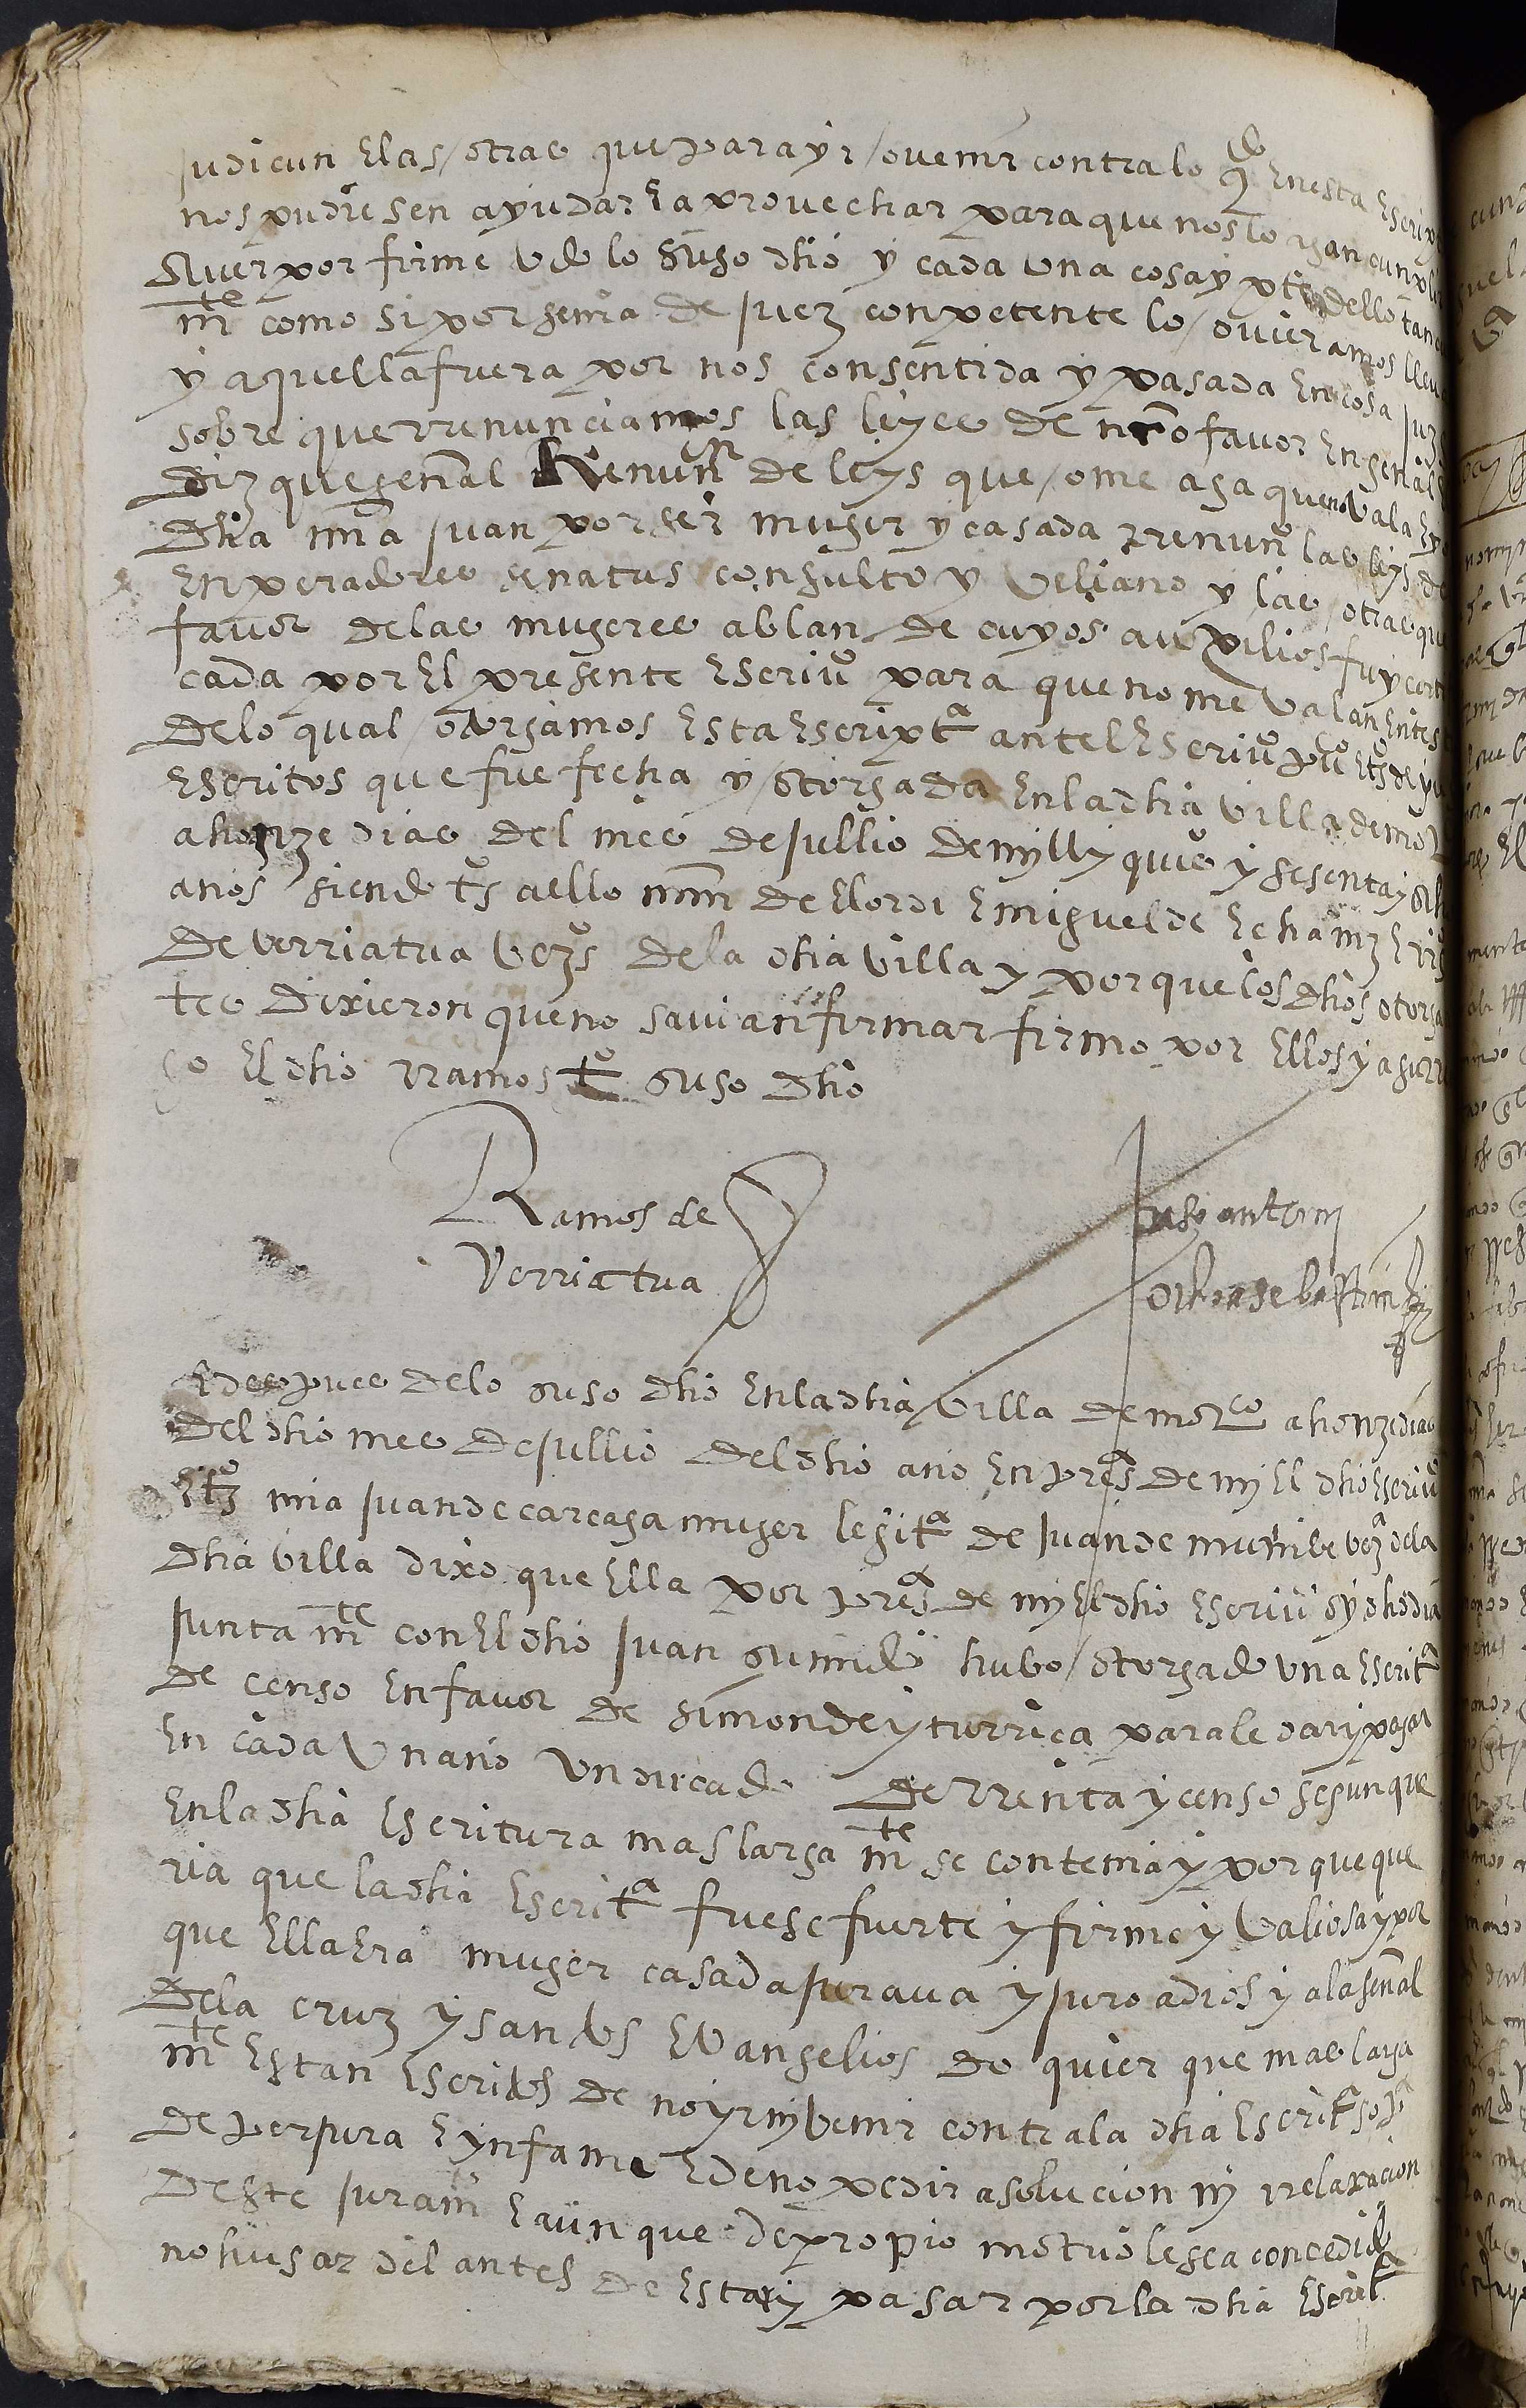 judicun E las / otras que para yr / o venir contra lo qdo En esta Escrip
nos pudiesen ayudar E a provechar para que nos lo agan cunplir
Aver por firme todo lo suso dho y cada una cosa y pte dello tan
mte como si por senia de juez conpetente lo / ovieramos lleva
y aquella fuera por nos consentida y pasada En cosa juz
sobre que rrenunciamos las leyes de nro favor En genal
diz que genal Renunon de leys que / ome aga que no vala E yo
dha mia juan por ser muger y casada rrenuno las leys de
Enperadores senatus consulto y veliano y las / otras que
favor de las mugeres ablan de cuyos auxilios fuy certi
cada por El presente Escrivo para que no me valan En test
de lo qual / otorgamos Esta Escripta antel Escrivo puco E tos de yu
Escritos que fue fecha y / otorgada En la dha villa de
a honze dias del mes de jullio de mill y quios y sesenta y
anos siendo tos a ello min de Elordi E miguel de Echaniz E
de verriatua vezos de la dha villa y por que los dhos otorga
tes dixieron que no savian firmar firmo por Ellos y a su rr
go El dho rramos to suso dho
Ramos de
Verriatua
E despues de lo suso dho En la dha villa de mco a honze dias
del dho mes de jullio del dho ano En presa de my El dho Escrivo
E tos mia juan de careaga muger legita de juan de munibe veza de la
dha villa dixo que Ella por presa de my El dho Escrivo oy dho dia
junta mte con El dho juan su mdo hubo / otorgado una Escrita
de censo En favor de simon de yturriça para le dar y pagar
En cada un ano un ducado de rrenta y censo segun que
En la dha Escritura mas larga mte se contenia y por que que
ria que la dha Escrita fuese fuerte y firme y valiosa y por
que Ella Era muger casada jurava y juro a dios y a la senal
de la cruz y santos Evangelios do quier que mas larga
mte Estan Escritos de no yr ny venir contra la dha Escrita so pa
de perjura E ynfame E de no pedir asolucion ny rrelaxacion
deste juramo E aun que de propio motuo le sea concedido
no husar del antes de Estar y pasar por la dha Escrita